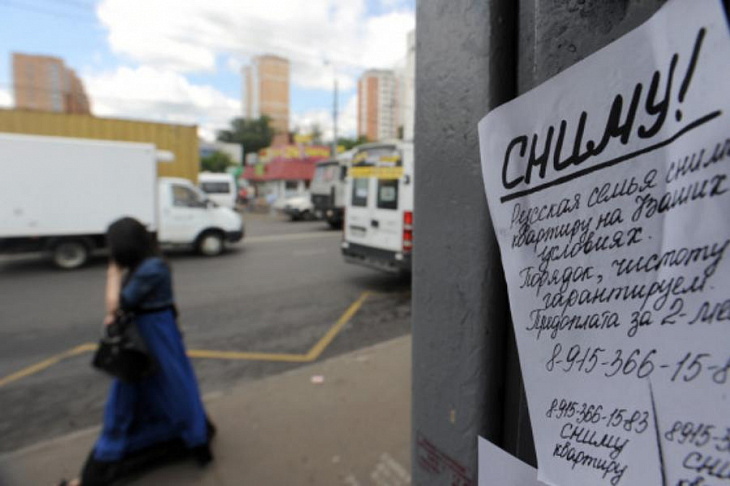 СНИМУ!
Русская семья сниме
квартиру на Ваших
условиях.
Порядок, чистоту
гарантируем.
Предоплата за 2-ме
8-915-366-15-8
8-915-366-1583
СНИМУ
квартиру
8-915-3
СНИ
кварт